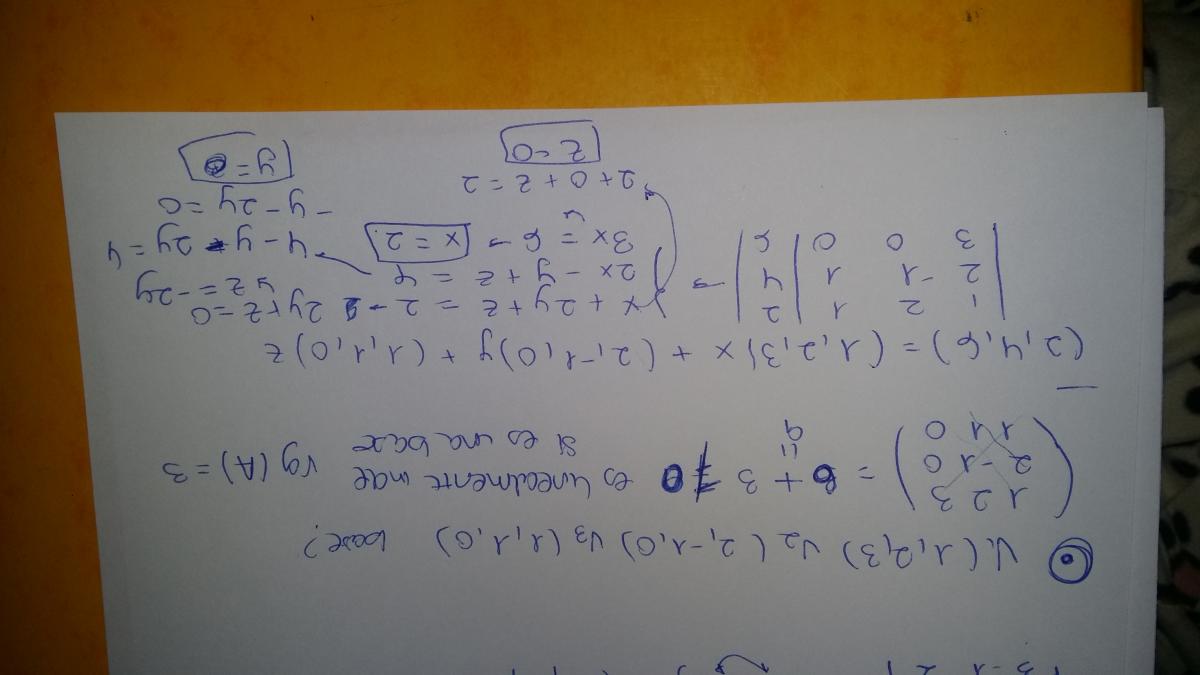 V₁(1,2,3) V₂(2,-1,0) V₃(1,1,0) base?
1 2 3
2 -1 0
1 1 0
= 6 + 3 ≠ 0 es linealmente inde rg(A) = 3
"
9
si es una base
(2,4,6) = (1,2,3)x + (2,-1,0)y + (1,1,0)z
1 2 1 | 2
2 -1 1 | 4
3 0 0 | 6
→
x + 2y + z = 2 → 2y + z = 0
2x - y + z = 4
z = -2y
3x = 6 → x = 2
4 - y - 2y = 4
- y - 2y = 0
y = 0
2 + 0 + z = 2
z = 0